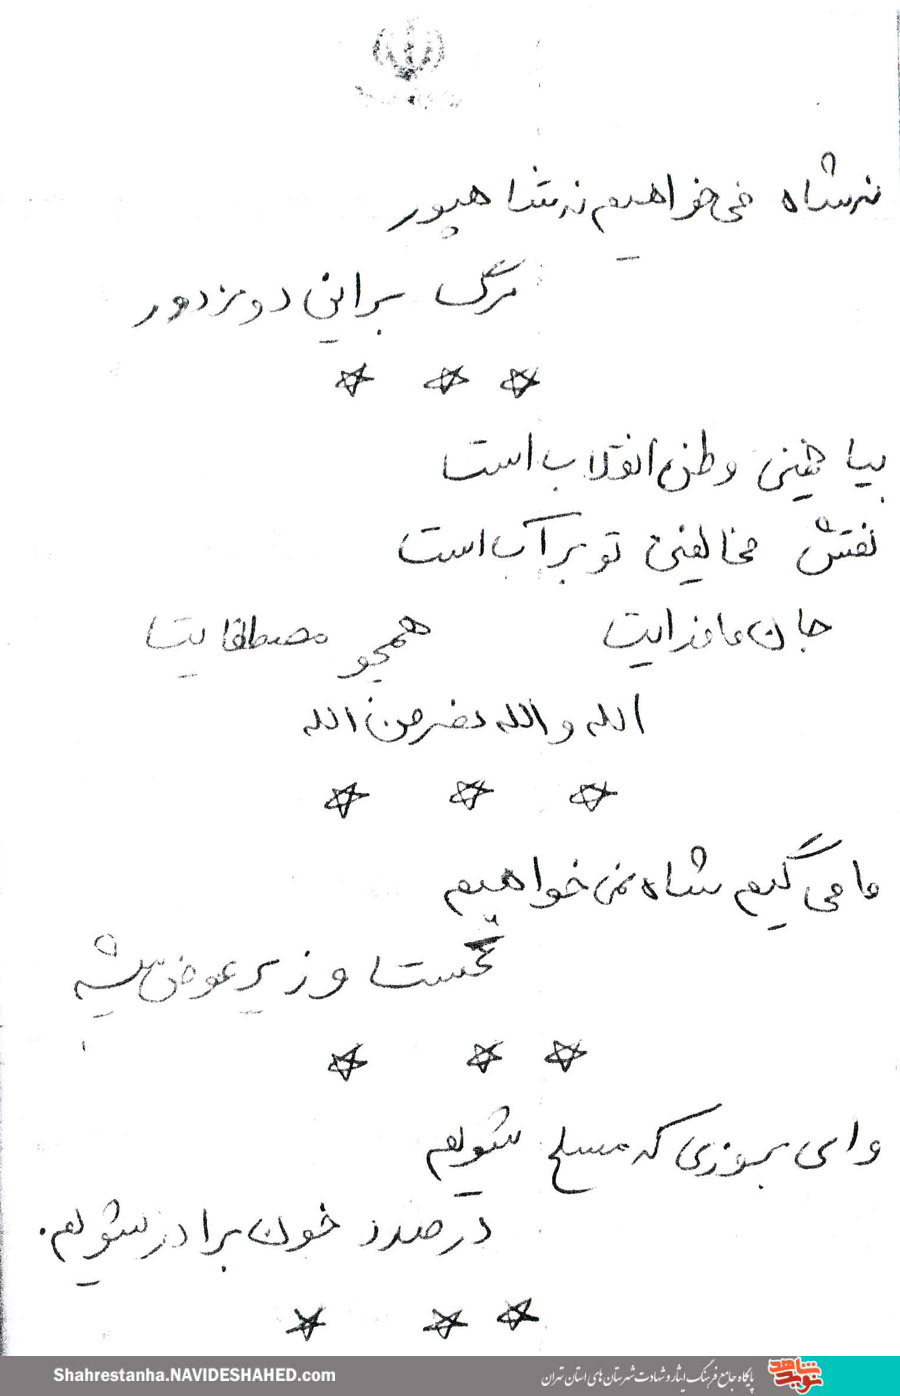 نه شاه می‌خواهیم نه شاهپور
مرگ براین دو مزدور
بیا خمینی وطن انقلاب است
نقش مخالفین تو برآب است
جان ما فدایت همچو مصطفایت
الله والله نصر من الله
ما می گیم شاه نمی خواهیم
نخست وزیر عوض میشه
وای بروزی که مسلح شویم
درصدد خون برادر شویم.
Shahrestanha.NAVIDESHAHED.com
پایگاه جامع فرهنگ ایثار و شهادت شهرستان های استان تهران
نوید شاهد